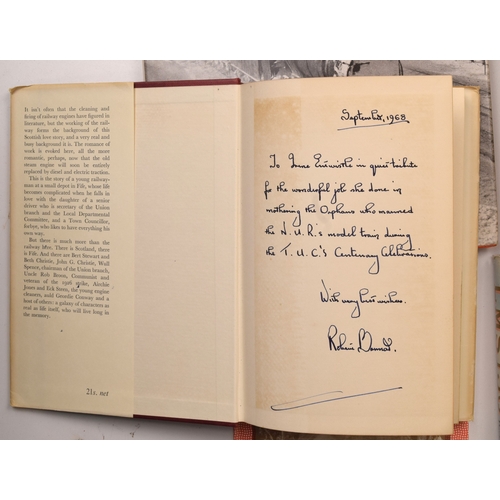 It isn't often that the cleaning and
firing of railway engines have figured in
literature, but the working of the rail-
way forms the background of this
Scottish love story, and a very real and
busy background it is. The romance of
work is evoked here, all the more
romantic, perhaps, now that the old
steam engine will soon be entirely
replaced by diesel and electric traction.
This is the story of a young railway-
man at a small depot in Fife, whose life
becomes complicated when he falls in
love with the daughter of a senior
driver who is secretary of the Union
branch and the Local Departmental
Committee, and a Town Councillor,
forbye, who likes to have everything his
own way.
But there is much more than the
railway here. There is Scotland, there
is Fife. And there are Bert Stewart and
Beth Christie, John G. Christie, Wull
Spence, chairman of the Union branch,
Uncle Rob Broon, Communist and
veteran of the 1926 strike, Airchie
Jones and Eck Steen, the young engine
cleaners, auld Geordie Conway and a
host of others: a galaxy of characters as
real as life itself, who will live long in
the memory.
21s. net
September, 1968
To Anne Entwistle in quiet tribute
for the wonderful job she done in
mothering the Orphans who manned
the N.U.R.'s model train during
the T.U.C.'s Centenary Celebrations.
With very best wishes.
Robert Bonnar.